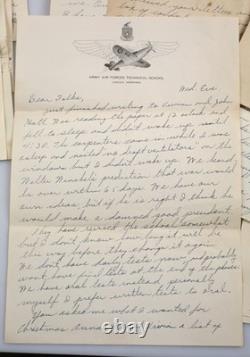 ARMY AIR FORCES TECHNICAL SCHOOL
Wed. Eve
Dear Folks,
Just finished writing to and John
Hall. Was reading the paper at 12 o'clock and
fell to sleep and didn't wake up until
4:30. The carpenters came in while I was
asleep and nailed no draft ventilators on the
windows and I didn't wake up. We heard
Walter Winchell's prediction that war would
be over within 61 days. We have our
own ideas, but if he is right I think he
would make a damned good president.
They have revised the school somewhat
but I don't know how long it will be
this way before they change it again.
We don't have daily tests now, and probably
won't have final tests at the end of the phase.
We have oral tests instead, personally
myself I prefer written tests to oral.
You asked me what I wanted for
Christmas. a list of
© ebay.com